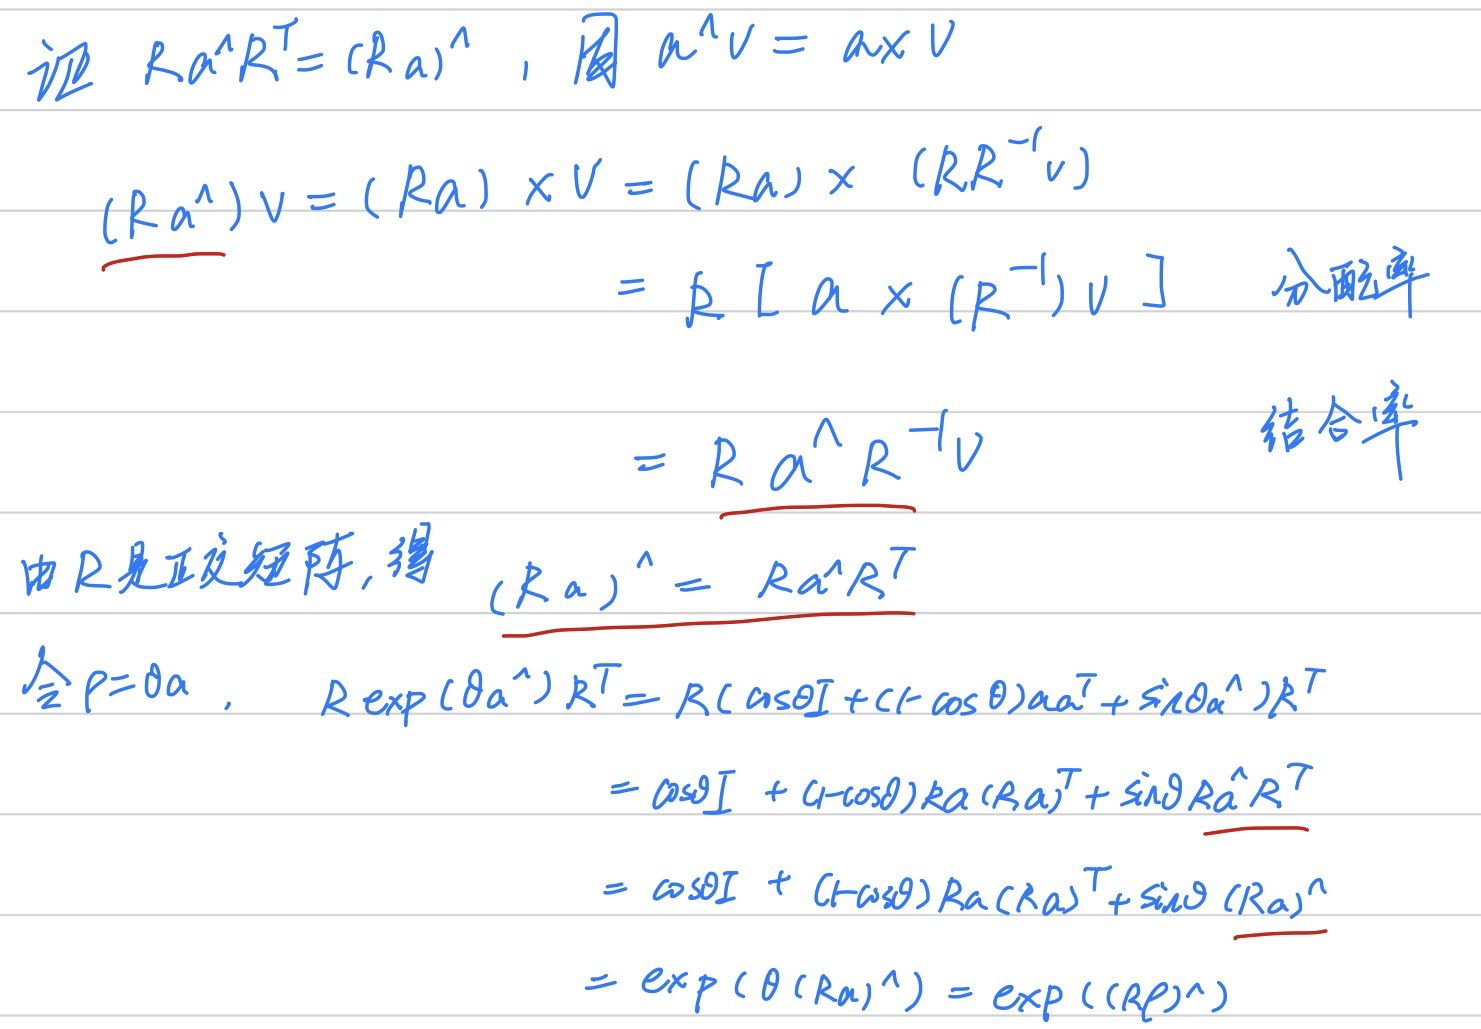 证 Ra^R^T = (Ra)^ , 因 a^v = a×v
(Ra^)v = (Ra) × v = (Ra) × (RR^{-1}v)
= R [ a × (R^{-1}) v ] 分配率
= R a^ R^{-1} v 结合率
由R是正交矩阵,得 (Ra)^ = Ra^R^T
令 ρ=θa , R exp(θa^) R^T = R(cosθI + (1-cosθ)aa^T + sinθa^)R^T
= cosθI + (1-cosθ)Ra(Ra)^T + sinθRa^R^T
= cosθI + (1-cosθ)Ra(Ra)^T + sinθ(Ra)^
= exp(θ(Ra)^) = exp((Rρ)^)